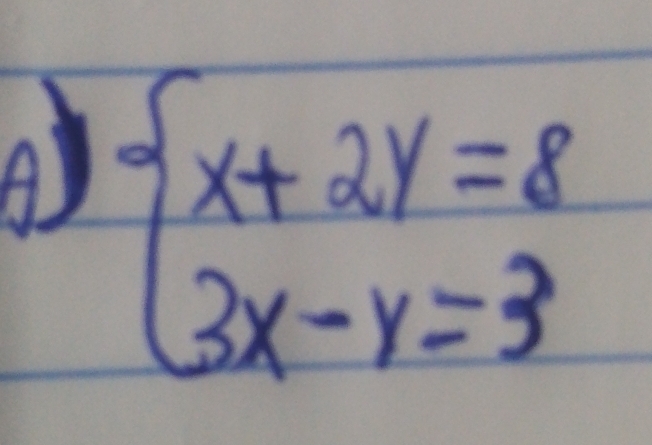 A) { x + 2y = 8
3x - y = 3